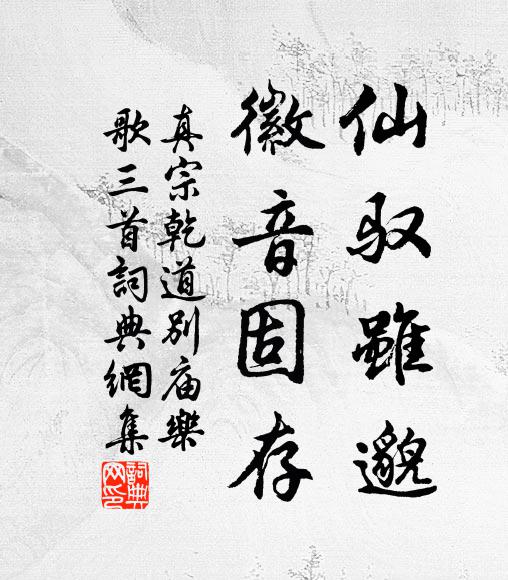 仙驭雖邈
徽音固存
真宗乾道别庙樂
歌三首詞典網集
詞典網印